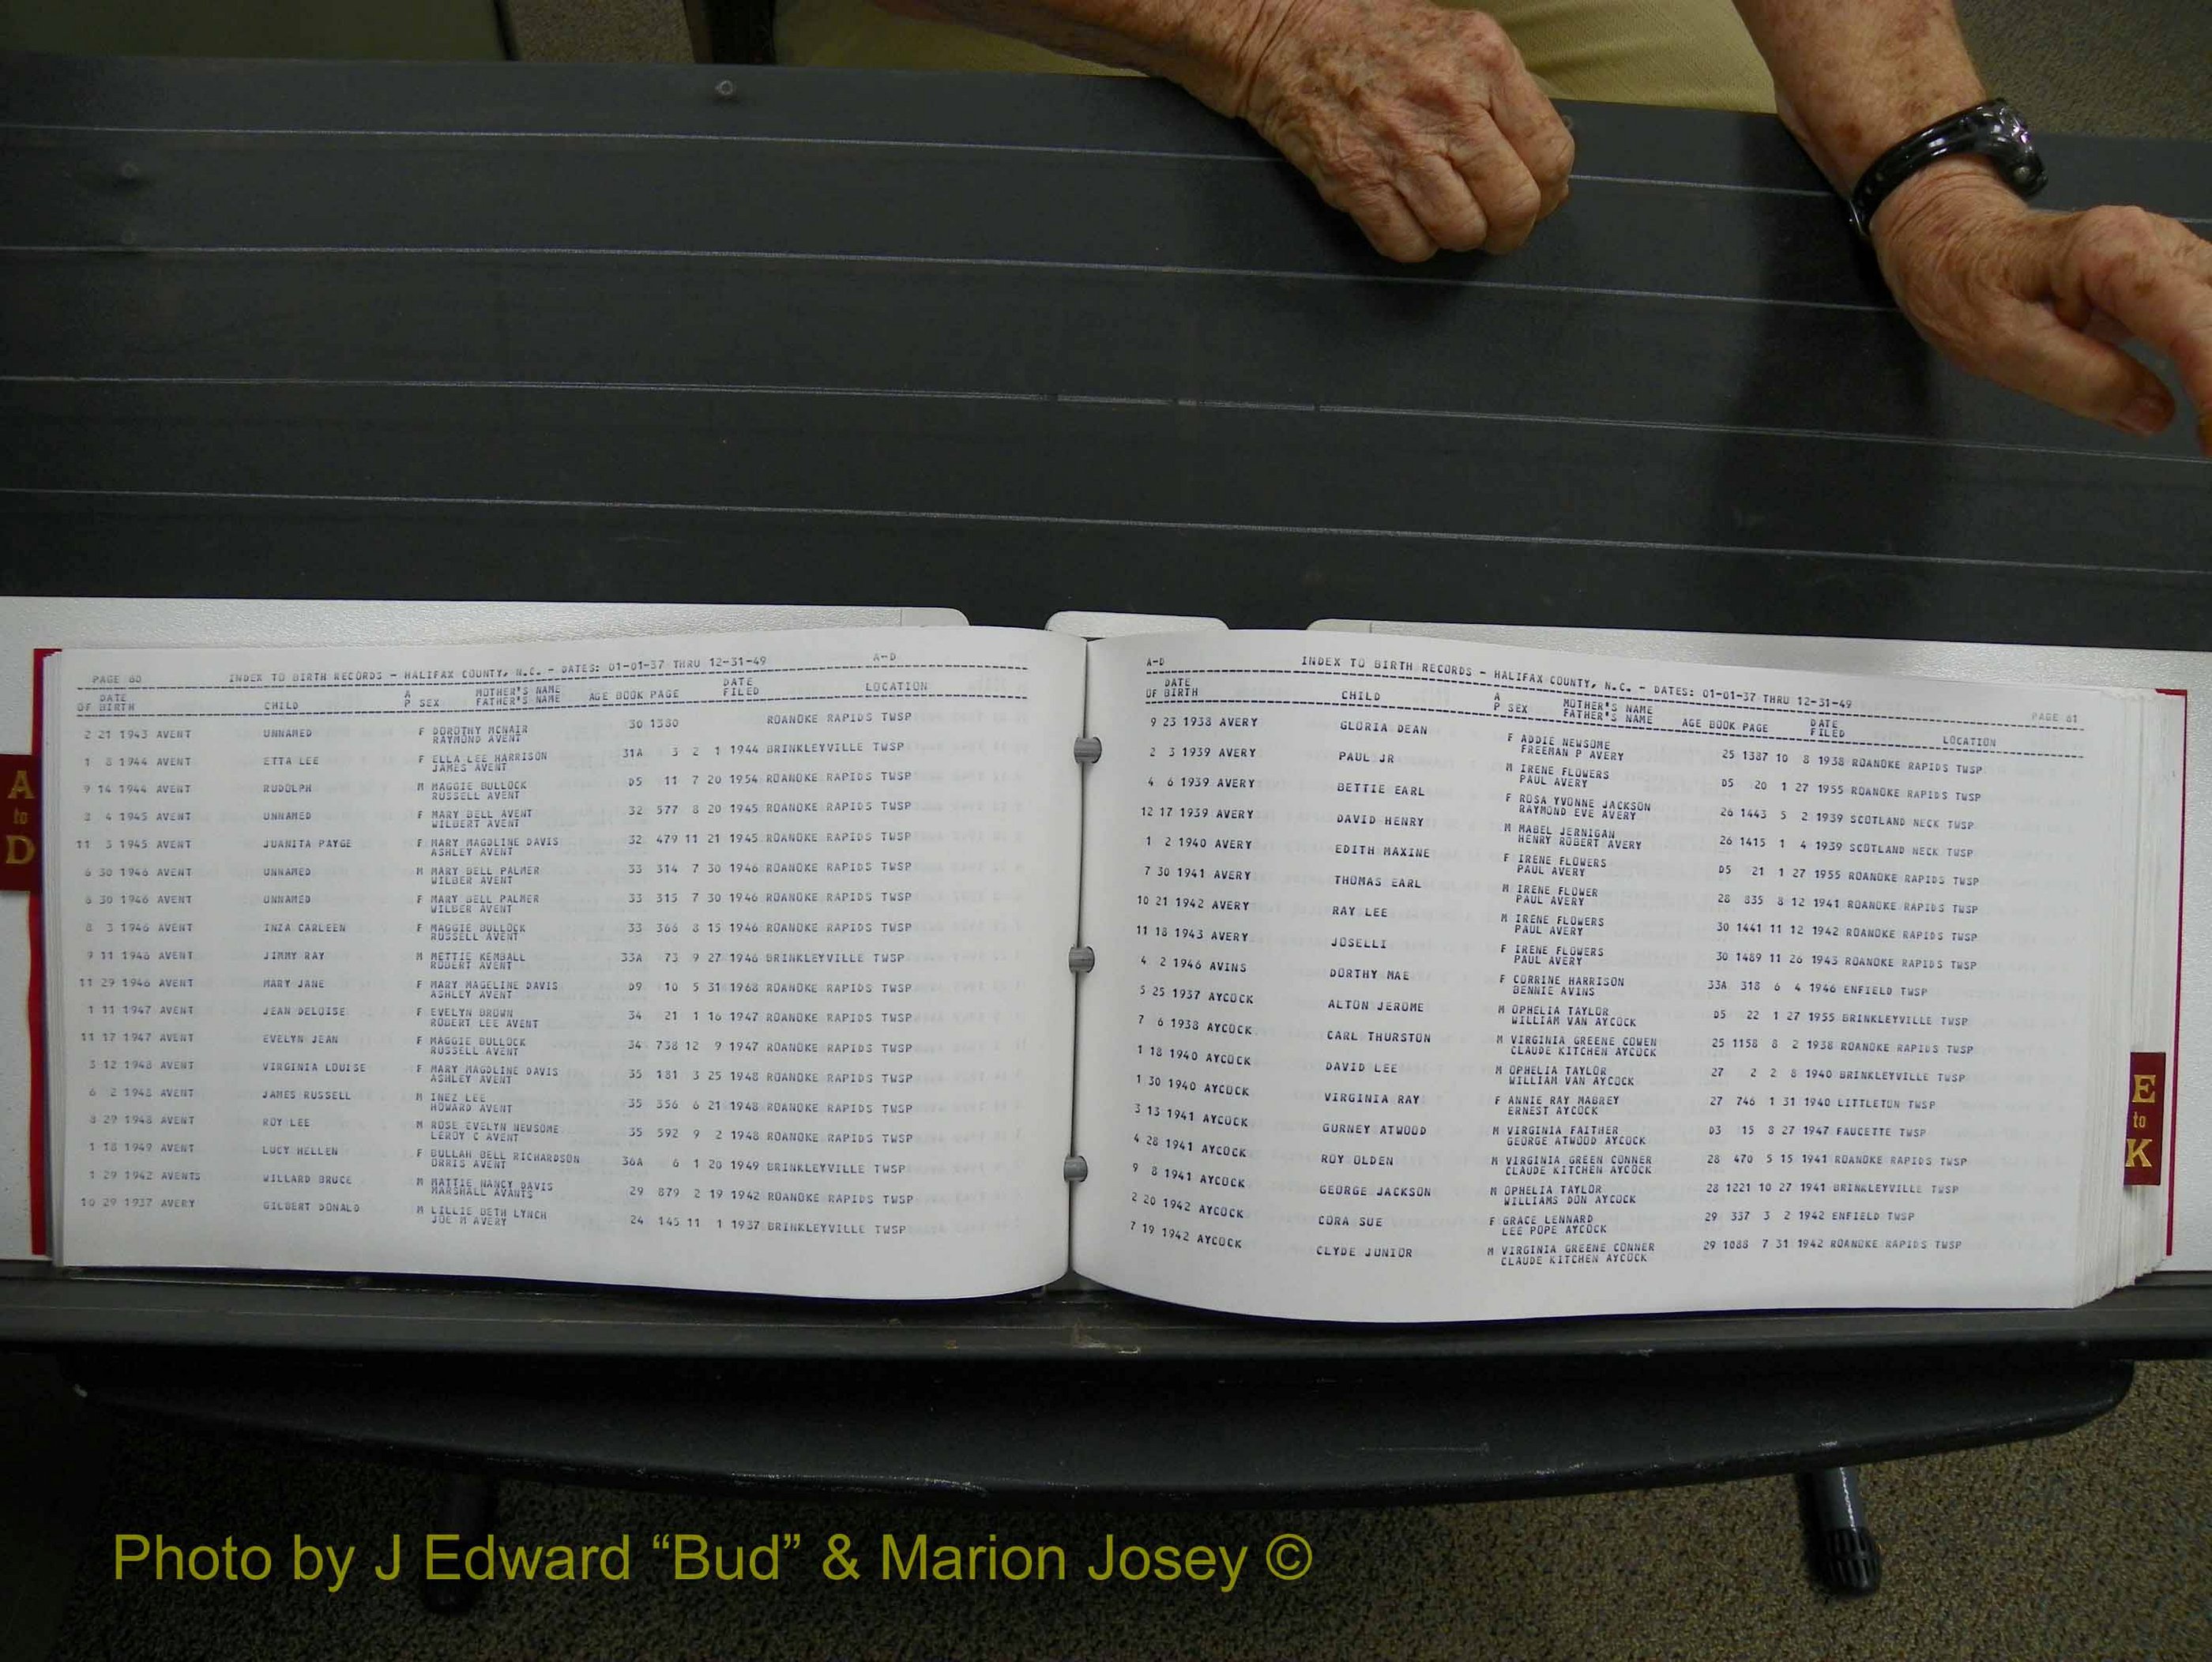 A
to
D
PAGE 60 INDEX TO BIRTH RECORDS - HALIFAX COUNTY, N.C. - DATES: 01-01-37 THRU 12-31-49 A-D
DATE OF BIRTH CHILD A P SEX MOTHER'S NAME FATHER'S NAME AGE BOOK PAGE DATE FILED LOCATION
2 21 1943 AVENT UNNAMED F DOROTHY MCNAIR 30 1380 ROANOKE RAPIDS TWSP
RAYMOND AVENT
1 8 1944 AVENT ETTA LEE F ELLA LEE HARRISON 31A 3 2 1 1944 BRINKLEYVILLE TWSP
JAMES AVENT
9 14 1944 AVENT RUDOLPH M MAGGIE BULLOCK D5 11 7 20 1954 ROANOKE RAPIDS TWSP
RUSSELL AVENT
8 4 1945 AVENT UNNAMED F MARY BELL AVENT 32 577 8 20 1945 ROANOKE RAPIDS TWSP
WILBERT AVENT
11 3 1945 AVENT JUANITA PAYGE F MARY MAGDLINE DAVIS 32 479 11 21 1945 ROANOKE RAPIDS TWSP
ASHLEY AVENT
6 30 1946 AVENT UNNAMED M MARY BELL PALMER 33 314 7 30 1946 ROANOKE RAPIDS TWSP
WILBER AVENT
6 30 1946 AVENT UNNAMED F MARY BELL PALMER 33 315 7 30 1946 ROANOKE RAPIDS TWSP
WILBER AVENT
8 3 1946 AVENT INZA CARLEEN F MAGGIE BULLOCK 33 366 8 15 1946 ROANOKE RAPIDS TWSP
RUSSELL AVENT
9 11 1946 AVENT JIMMY RAY M METTIE KEMBALL 33A 73 9 27 1946 BRINKLEYVILLE TWSP
ROBERT AVENT
11 29 1946 AVENT MARY JANE F MARY MAGELINE DAVIS D9 10 5 31 1968 ROANOKE RAPIDS TWSP
ASHLEY AVENT
1 11 1947 AVENT JEAN DELOISE F EVELYN BROWN 34 21 1 16 1947 ROANOKE RAPIDS TWSP
ROBERT LEE AVENT
11 17 1947 AVENT EVELYN JEAN F MAGGIE BULLOCK 34 738 12 9 1947 ROANOKE RAPIDS TWSP
RUSSELL AVENT
3 12 1948 AVENT VIRGINIA LOUISE F MARY MAGDLINE DAVIS 35 181 3 25 1948 ROANOKE RAPIDS TWSP
ASHLEY AVENT
6 2 1948 AVENT JAMES RUSSELL M INEZ LEE 35 356 6 21 1948 ROANOKE RAPIDS TWSP
HOWARD AVENT
8 29 1948 AVENT ROY LEE M ROSE EVELYN NEWSOME 35 592 9 2 1948 ROANOKE RAPIDS TWSP
LEROY C AVENT
1 18 1949 AVENT LUCY HELLEN F BULLAH BELL RICHARDSON 36A 6 1 20 1949 BRINKLEYVILLE TWSP
ORRIS AVENT
1 29 1942 AVENTS WILLARD BRUCE M MATTIE NANCY DAVIS 29 879 2 19 1942 ROANOKE RAPIDS TWSP
MARSHALL AVANTS
10 29 1937 AVERY GILBERT DONALD M LILLIE BETH LYNCH 24 145 11 1 1937 BRINKLEYVILLE TWSP
JOE M AVERY
A-D INDEX TO BIRTH RECORDS - HALIFAX COUNTY, N.C. - DATES: 01-01-37 THRU 12-31-49 PAGE 61
DATE OF BIRTH CHILD A P SEX MOTHER'S NAME FATHER'S NAME AGE BOOK PAGE DATE FILED LOCATION
9 23 1938 AVERY GLORIA DEAN F ADDIE NEWSOME 25 1387 10 8 1938 ROANOKE RAPIDS TWSP
FREEMAN P AVERY
2 3 1939 AVERY PAUL JR M IRENE FLOWERS D5 20 1 27 1955 ROANOKE RAPIDS TWSP
PAUL AVERY
4 6 1939 AVERY BETTIE EARL F ROSA YVONNE JACKSON 26 1443 5 2 1939 SCOTLAND NECK TWSP
RAYMOND EVE AVERY
12 17 1939 AVERY DAVID HENRY M MABEL JERNIGAN 26 1415 1 4 1939 SCOTLAND NECK TWSP
HENRY ROBERT AVERY
1 2 1940 AVERY EDITH MAXINE F IRENE FLOWERS D5 21 1 27 1955 ROANOKE RAPIDS TWSP
PAUL AVERY
7 30 1941 AVERY THOMAS EARL M IRENE FLOWER 28 835 8 12 1941 ROANOKE RAPIDS TWSP
PAUL AVERY
10 21 1942 AVERY RAY LEE M IRENE FLOWERS 30 1441 11 12 1942 ROANOKE RAPIDS TWSP
PAUL AVERY
11 18 1943 AVERY JOSELLI F IRENE FLOWERS 30 1489 11 26 1943 ROANOKE RAPIDS TWSP
PAUL AVERY
4 2 1946 AVINS DORTHY MAE F CORRINE HARRISON 33A 318 6 4 1946 ENFIELD TWSP
BENNIE AVINS
5 25 1937 AYCOCK ALTON JEROME M OPHELIA TAYLOR D5 22 1 27 1955 BRINKLEYVILLE TWSP
WILLIAM VAN AYCOCK
7 6 1938 AYCOCK CARL THURSTON M VIRGINIA GREENE COWEN 25 1158 8 2 1938 ROANOKE RAPIDS TWSP
CLAUDE KITCHEN AYCOCK
1 18 1940 AYCOCK DAVID LEE M OPHELIA TAYLOR 27 2 2 8 1940 BRINKLEYVILLE TWSP
WILLIAM VAN AYCOCK
1 30 1940 AYCOCK VIRGINIA RAY F ANNIE RAY MABREY 27 746 1 31 1940 LITTLETON TWSP
ERNEST AYCOCK
3 13 1941 AYCOCK GURNEY ATWOOD M VIRGINIA FAITHER D3 15 8 27 1947 FAUCETTE TWSP
GEORGE ATWOOD AYCOCK
4 28 1941 AYCOCK ROY OLDEN M VIRGINIA GREEN CONNER 28 470 5 15 1941 ROANOKE RAPIDS TWSP
CLAUDE KITCHEN AYCOCK
9 8 1941 AYCOCK GEORGE JACKSON M OPHELIA TAYLOR 28 1221 10 27 1941 BRINKLEYVILLE TWSP
WILLIAMS DON AYCOCK
2 20 1942 AYCOCK CORA SUE F GRACE LENNARD 29 337 3 2 1942 ENFIELD TWSP
LEE POPE AYCOCK
7 19 1942 AYCOCK CLYDE JUNIOR M VIRGINIA GREENE CONNER 29 1088 7 31 1942 ROANOKE RAPIDS TWSP
CLAUDE KITCHEN AYCOCK
E
to
K
Photo by J Edward “Bud” & Marion Josey ©